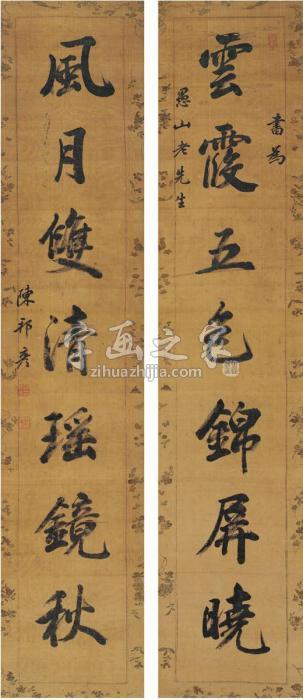 書為
愚山老先生
雲霞五色錦屏曉
風月雙清瑤鏡秋
陳邦彥
書画之家
zihuazhijia.com